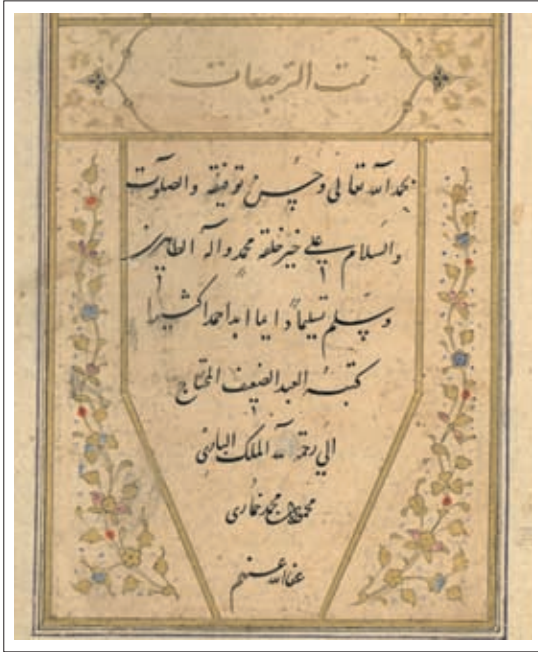 تمت الترجیعات
بحمد الله تعالی وحسن توفیقه والصلوت
والسلام علی خیر خلقه محمد واله الطاهرین
وسلم تسلیما دایما ابدا کثیرا
کتبه العبد الضعیف المحتاج
الی رحمة الله الملک الباری
محمد
عفا الله عنهم